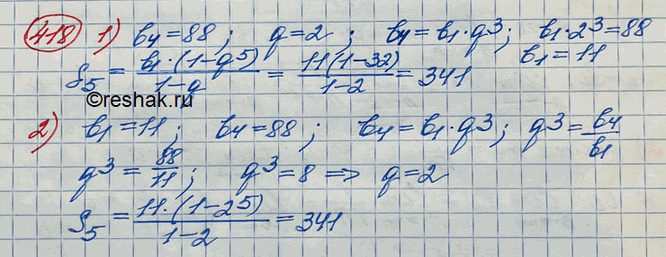 418 1) b₄ = 88; q = 2; b₄ = b₁·q³; b₁·2³ = 88
b₁ = 11
S₅ = b₁·(1-q⁵)/1-q = 11(1-32)/1-2 = 341
©reshak.ru
2) b₁ = 11; b₄ = 88; b₄ = b₁·q³; q³ = b₄/b₁
q³ = 88/11; q³ = 8 => q = 2
S₅ = 11·(1-2⁵)/1-2 = 341